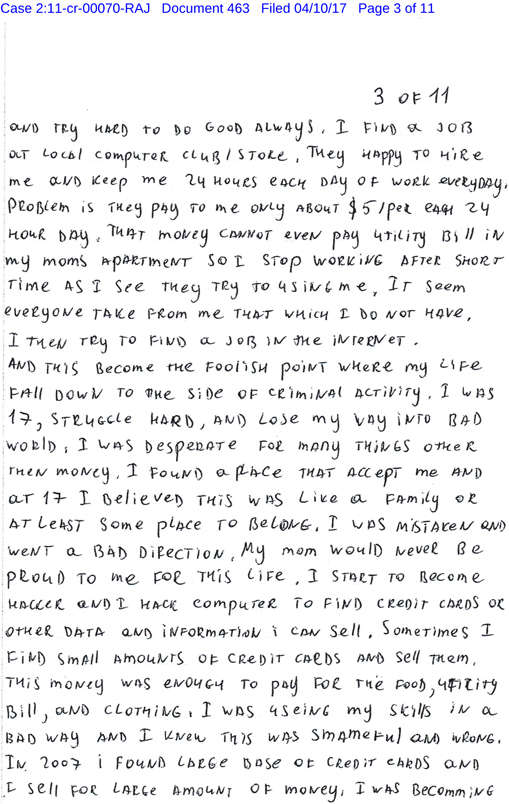 Case 2:11-cr-00070-RAJ Document 463 Filed 04/10/17 Page 3 of 11
3 OF 11
AND TRY HARD TO DO GOOD ALWAYS. I FIND a JOB
aT LOCAL COMPUTER CLUB/STORE. They HAPPY TO HIRE
me AND Keep me 24 HOURS EACH DAY OF WORK everyDAY.
PROBLEM is THEY PAY TO me ONLY ABOUT $5/PER EACH 24
HOUR DAY. THAT money CANNOT even pay UTILITY Bill iN
my moms APARTMENT SO I STOP WORKING AFTER SHORT
Time AS I See they TRY TO USING me. IT Seem
everyone TAKE FROM me THAT WHICH I DO NOT HAVE.
I THEN TRY TO FIND a JOB IN THE INTERNET.
AND THIS Become THE FOOLISH POINT WHERE my LIFE
FAll DOWN TO THE SIDE OF CRIMINAL ACTIVITY. I WAS
17, STRUGGLE HARD, AND LOSE my WAY INTO BAD
WORLD. I WAS DESPERATE FOR MANY THINGS OTHER
THEN MONEY. I FOUND a PLACE THAT ACCEPT me AND
aT 17 I Believed THIS WAS Like a FAMILY OR
AT LEAST Some place TO BELONG. I WAS MISTAKEN AND
WENT a BAD DIRECTION. My mom WOULD NEVER Be
PROUD TO me FOR THIS LIFE. I START TO Become
HACCER AND I HACK COMPUTER TO FIND CREDIT CARDS OR
OTHER DATA AND INFORMATION i CAN Sell. SOMETIMES I
FIND SMAll AMOUNTS OF CREDIT CARDS AND Sell THEM.
THIS MONEY WAS ENOUGH TO PAY FOR THE FOOD, UTILITY
Bill, AND CLOTHING. I WAS USEING my SKIllS IN a
BAD WAY AND I KNEW THIS WAS SHAMEFUl AND WRONG.
IN 2007 i FOUND LARGE BASE OF CREDIT CARDS AND
I Sell FOR LARGE AMOUNT OF MONEY. I WAS BECOMMING